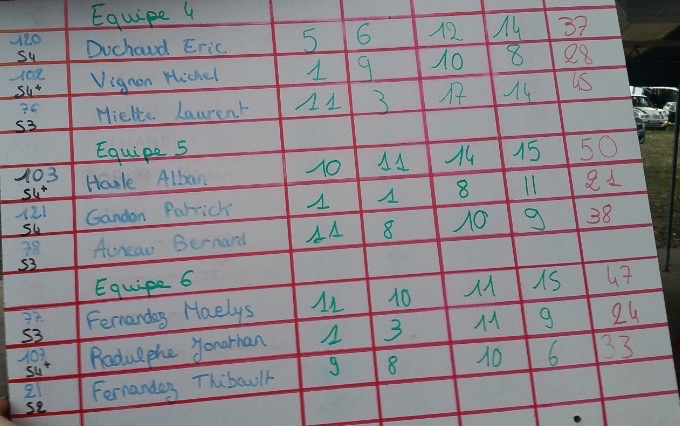 Equipe 4
120 Duchaud Eric 5 6 12 14 37
S4
102 Vignon Michel 1 9 10 8 28
S4+
76 Miette Laurent 11 3 17 14 45
S3
Equipe 5
103 Haale Alban 10 11 14 15 50
S4+
121 Gandon Patrick 1 1 8 11 21
S4
78 Auneau Bernard 11 8 10 9 38
S3
Equipe 6
77 Fernandez Maelys 11 10 11 15 47
S3
107 Radulphe Jonathan 1 3 11 9 24
S4+
21 Fernandez Thibault 9 8 10 6 33
S2